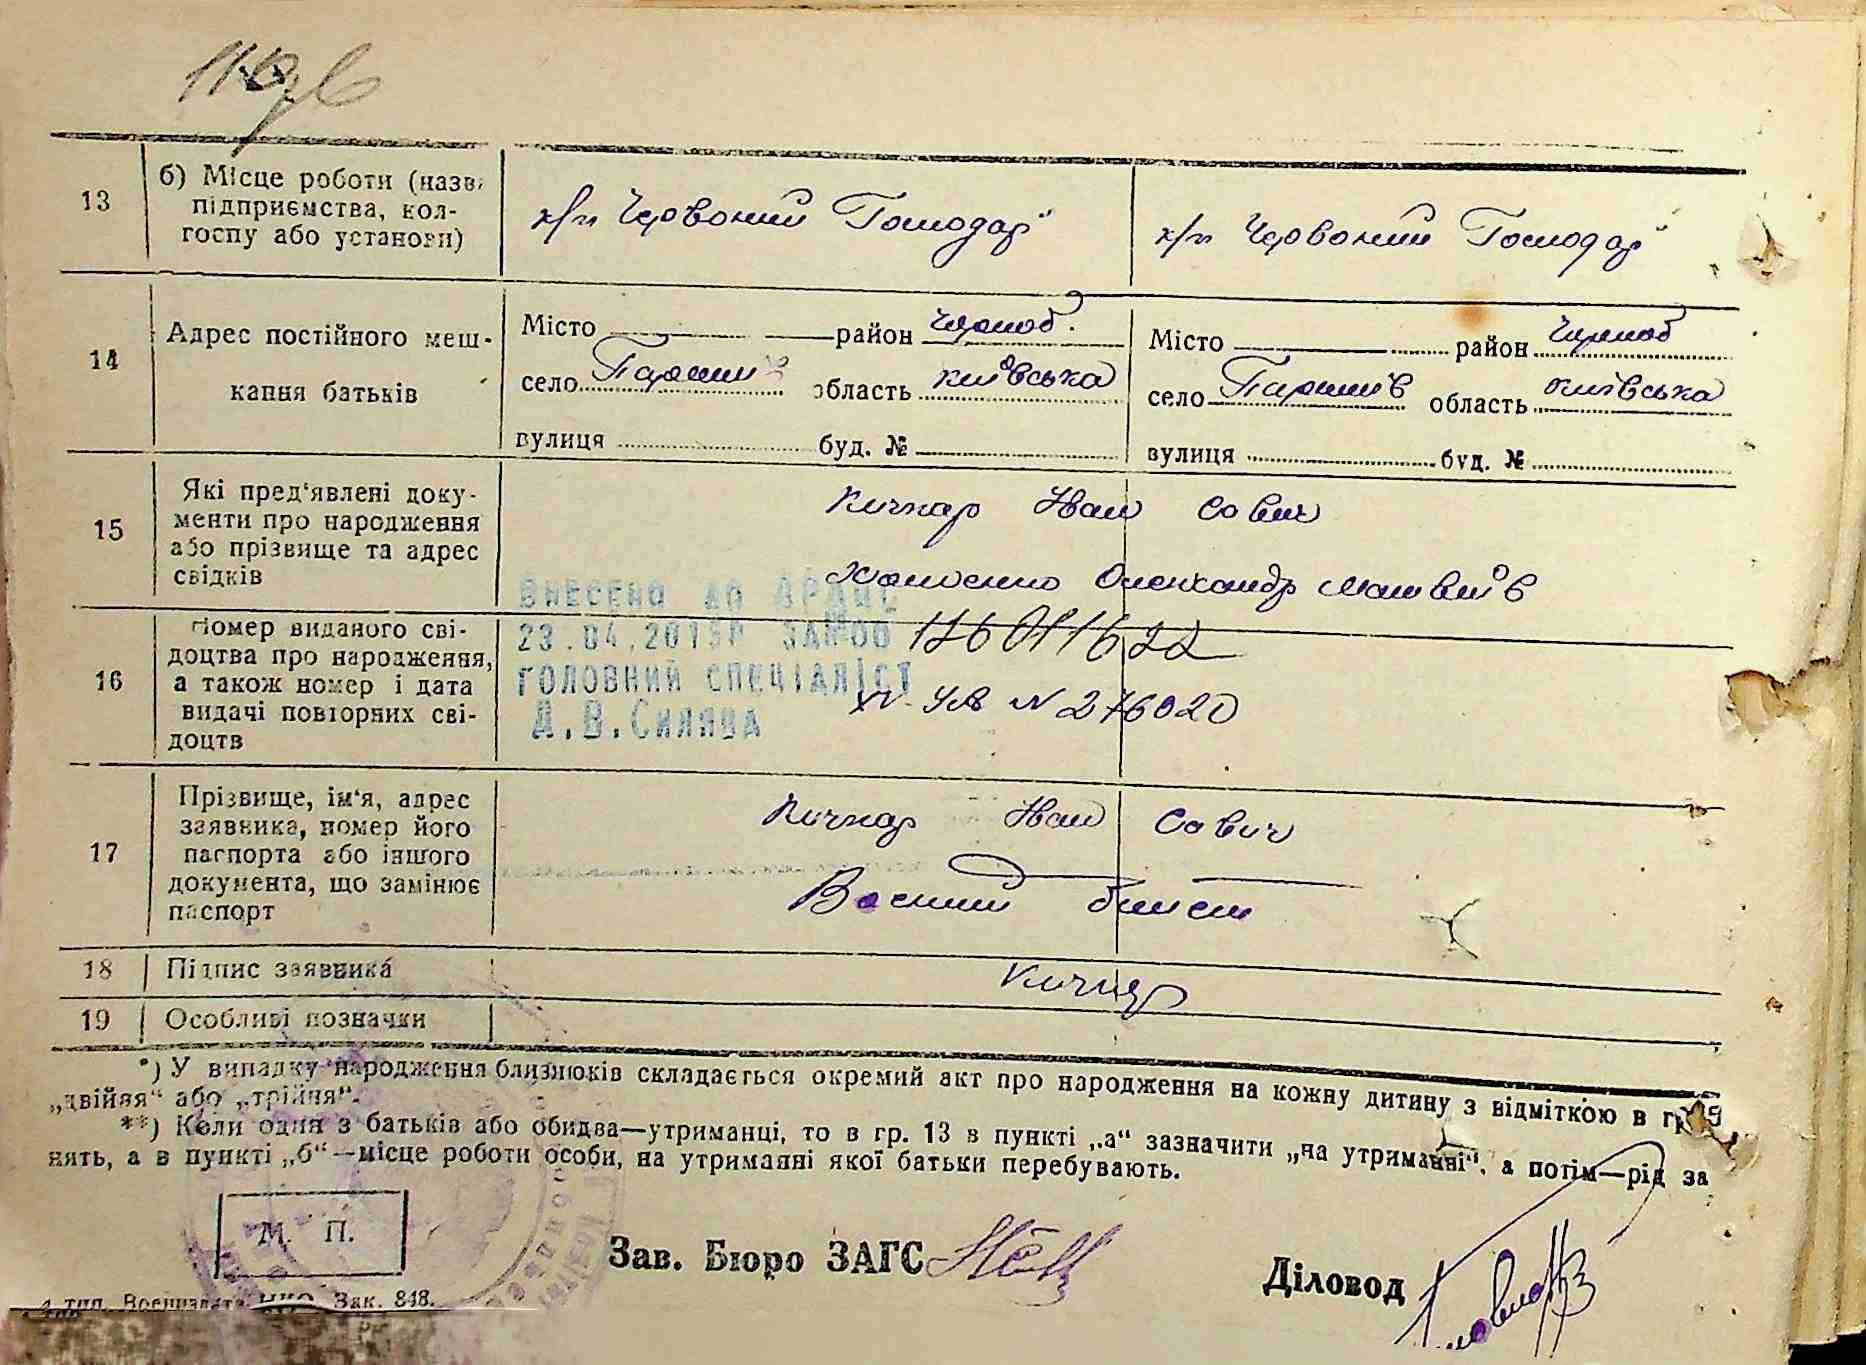 13
б) Місце роботи (назв
підприємства, кол-
госпу або установи)
к/г Червоний Господар"
к/г Червоний Господар"
14
Адрес постійного меш-
кання батьків
Місто район Чорноб.
село Паришів область київська
вулиця буд. №
Місто район Чорноб
село Паришів область київська
вулиця буд. №
15
Які пред'явлені доку-
менти про народження
або прізвище та адрес
свідків
Кичкар Иван Савич
Олександр Матвіїв
16
Номер виданого сві-
доцтва про народження,
а також номер і дата
видачі повторних сві-
доцтв
ВНЕСЕНО ДО ДРАЦС
23.04.2013Р ЗА №00 126011622
ГОЛОВНИЙ СПЕЦІАЛІСТ
Д.В.Силява
N 276020
17
Прізвище, ім'я, адрес
заявника, номер його
паспорта або іншого
документа, що замінює
паспорт
Кичкар Иван Савич
Воєнний билет
18 Підпис заявника Кичкар
19 Особливі позначки
*) У випадку народження близнюків складається окремий акт про народження на кожну дитину з відміткою в гр. 5
„двійня“ або „трійня“.
**) Коли один з батьків або обидва—утриманці, то в гр. 13 в пункті „а“ зазначити „на утриманні“, а потім—рід за
нять, а в пункті „б“—місце роботи особи, на утриманні якої батьки перебувають.
М. П.
Зав. Бюро ЗАГС
Діловод
тип. Воєниздата НКО. Зак. 848.